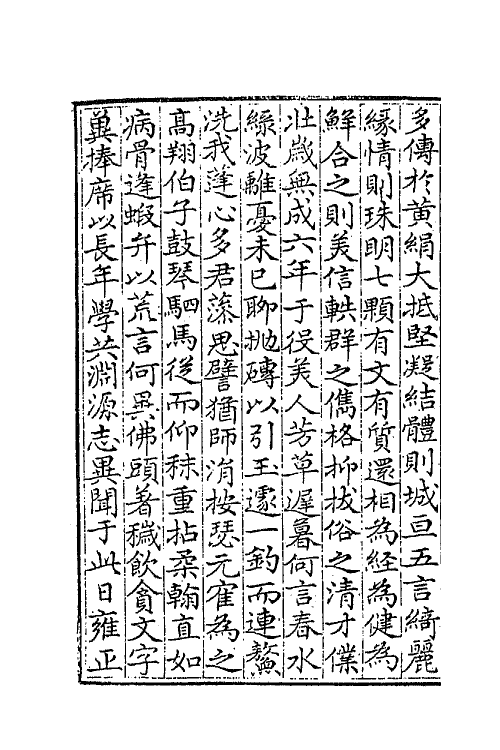 多傳於黃絹大抵堅凝結體則城亘五言綺麗
緣情則珠明七顆有文有質還相為經為健為
鮮合之則美信軼群之儁格抑拔俗之清才僕
壯歲無成六年于役美人芳草遲暮何言春水
綠波離憂未已聊抛磚以引玉遽一釣而連鰲
洗我蓬心多君藻思譬猶師涓按瑟元寉為之
高翔伯子鼓琴駟馬從而仰秣重拈柔翰直如
病骨逢蝦弁以荒言何異佛頭著穢飲貪文字
冀捧席以長年學共淵源志異聞于此日雍正